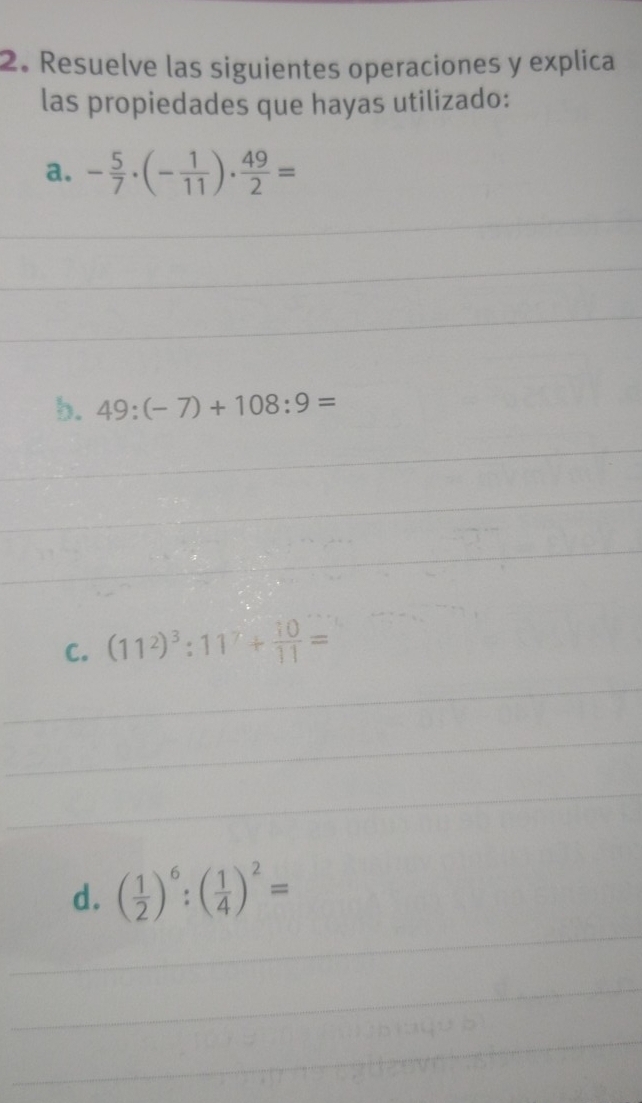 2. Resuelve las siguientes operaciones y explica
las propiedades que hayas utilizado:
a. −5/7 · (−1/11) · 49/2 =
b. 49:(− 7) + 108:9 =
c. (11²)³ : 11⁷ + 10/11 =
d. (1/2)⁶ : (1/4)² =